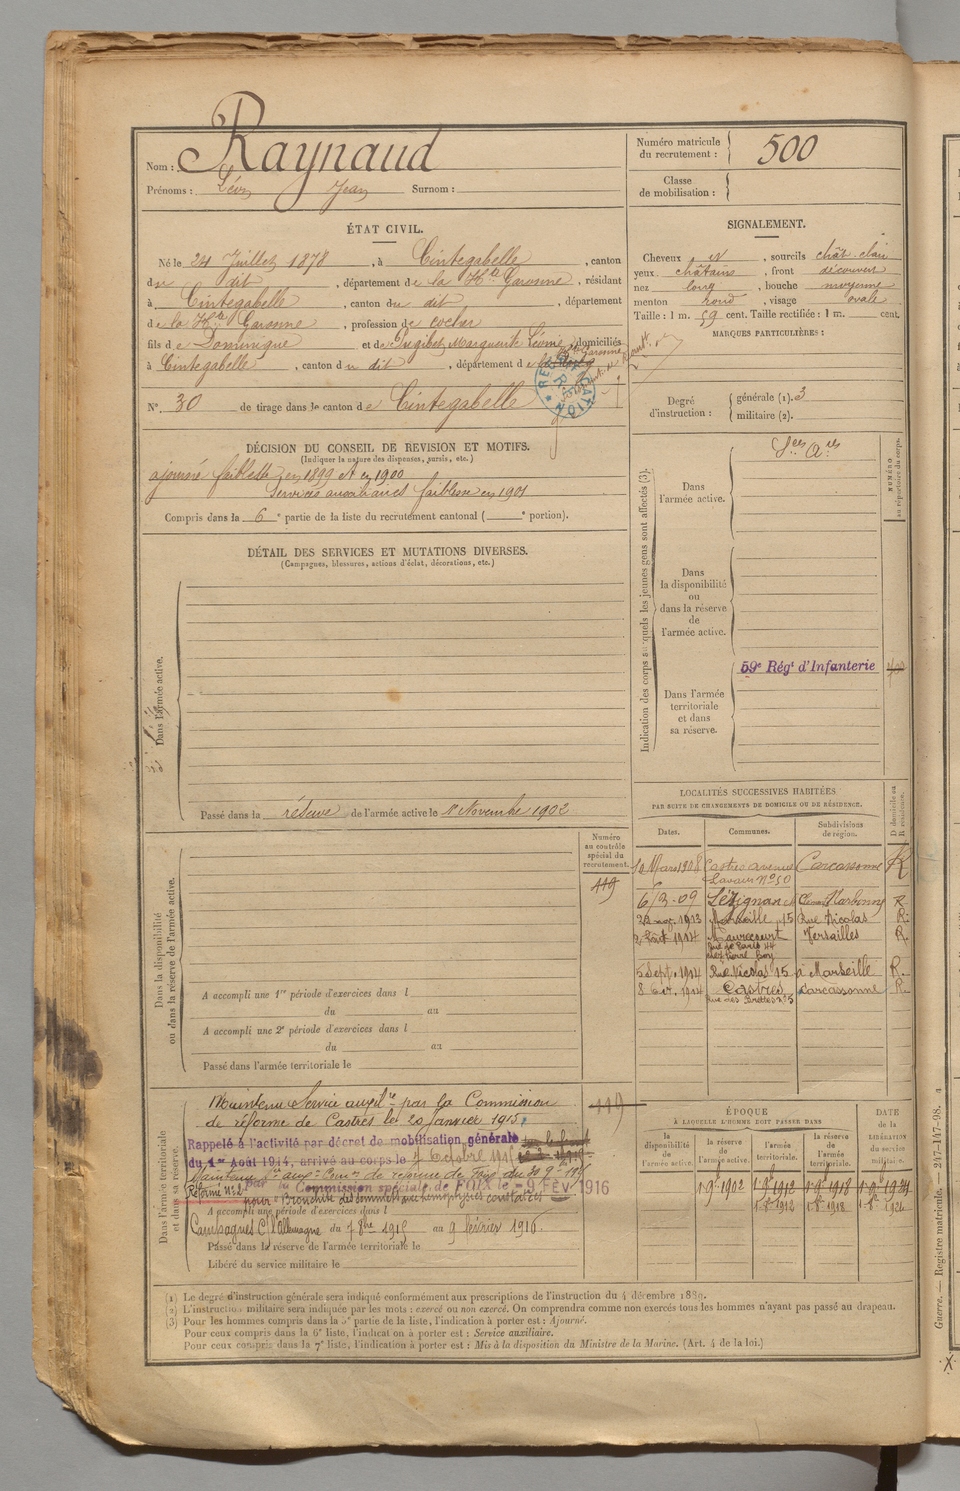 Nom : Raynaud
Prénoms : Léon Jean Surnom :
Numéro matricule du recrutement : 500
Classe de mobilisation :
ÉTAT CIVIL.
Né le 24 Juillet 1878, à Cintegabelle, canton
du dit, département de la Hte Garonne, résidant
à Cintegabelle, canton du dit, département
de la Hte Garonne, profession de cocher
fils de Dominique et de Pugibet Marguerite Léonie, domiciliés
à Cintegabelle, canton du dit, département de Hte Garonne
N°. 30 de tirage dans le canton de Cintegabelle
SIGNALEMENT.
Cheveux et, sourcils chât clair
yeux châtains, front découvert
nez long, bouche moyenne
menton rond, visage ovale
Taille : 1 m. 59 cent. Taille rectifiée : 1 m. cent.
MARQUES PARTICULIÈRES :
Degré d'instruction : générale (1). 3
militaire (2).
DÉCISION DU CONSEIL DE REVISION ET MOTIFS.
(Indiquer la nature des dispenses, sursis, etc.)
ajourné faiblesse en 1899 et en 1900
Services auxiliaires faiblesse en 1901
Compris dans la 6e partie de la liste du recrutement cantonal ( e portion).
DÉTAIL DES SERVICES ET MUTATIONS DIVERSES.
(Campagnes, blessures, actions d'éclat, décorations, etc.)
Dans l'armée active.
Passé dans la réserve de l'armée active le 1er Novembre 1902
Indication des corps auxquels les jeunes gens sont affectés (3).
NUMÉRO au répertoire du corps.
Dans l'armée active.
Sces Ares
Dans la disponibilité ou dans la réserve de l'armée active.
Dans l'armée territoriale et dans sa réserve.
59e Régt d'Infanterie
LOCALITÉS SUCCESSIVES HABITÉES
PAR SUITE DE CHANGEMENTS DE DOMICILE OU DE RÉSIDENCE.
Dates. Communes. Subdivisions de région. D domicile ou R résidence.
10 Mars 1908 Castres avenue Lavaur N° 50 Carcassonne R
6/3-09 Lézignan Narbonne R
1913 Marseille, 15 Rue Nicolas R.
2 Août 1914 Maurecourt Rue de Paris 44 Versailles R.
5 Sept. 1914 Rue Nicolas 15 à Marseille R.
8 1914 Castres Rue des n° 5 Carcassonne R.
Numéro au contrôle spécial du recrutement.
119
Dans la disponibilité ou dans la réserve de l'armée active.
A accompli une 1re période d'exercices dans l
du au
A accompli une 2e période d'exercices dans l
du au
Passé dans l'armée territoriale le
Dans l'armée territoriale et dans sa réserve.
Maintenu Service auxilre par la Commission
de réforme de Castres le 20 Janvier 1915.
119
Rappelé à l'activité par décret de mobilisation générale
du 1er Août 1914, arrivé au corps le 7 Octobre 1915
Maintenu Sce auxre Comon de réforme de Foix du 30 9bre 1915
Réformé n° 2 par la Commission spéciale de FOIX le - 9 FÉV 1916
pour Bronchite des sommets avec hémoptysies constatées
A accompli une période d'exercices dans l
Campagnes C/ l'Allemagne du 7 8bre 1915 au 9 février 1916.
Passé dans la réserve de l'armée territoriale le
Libéré du service militaire le
ÉPOQUE
À LAQUELLE L'HOMME DOIT PASSER DANS
la disponibilité de l'armée active. la réserve de l'armée active. l'armée territoriale. la réserve de l'armée territoriale.
DATE de la LIBÉRATION du service militaire.
1-9-1902 1-9-1912 1-9-1918 1-9-1924
1-8-1912 1-8-1918 1-8-1924
(1) Le degré d'instruction générale sera indiqué conformément aux prescriptions de l'instruction du 4 décembre 1889.
(2) L'instruction militaire sera indiquée par les mots : exercé ou non exercé. On comprendra comme non exercés tous les hommes n'ayant pas passé au drapeau.
(3) Pour les hommes compris dans la 5e partie de la liste, l'indication à porter est : Ajourné.
Pour ceux compris dans la 6e liste, l'indication à porter est : Service auxiliaire.
Pour ceux compris dans la 7e liste, l'indication à porter est : Mis à la disposition du Ministre de la Marine. (Art. 4 de la loi.)
Guerre. — Registre matricule. — 247-147-98.